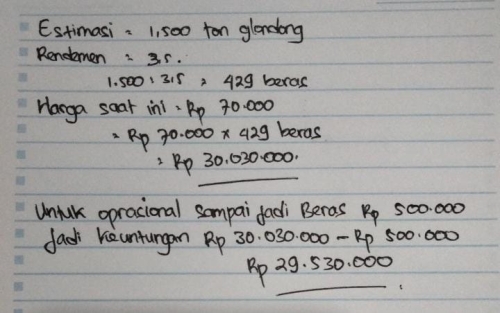 Estimasi = 1.500 ton glondong
Rendemen = 3,5.
1.500 : 3,5 = 429 beras
Harga saat ini = Rp 70.000
= Rp 70.000 x 429 beras
= Rp 30.030.000.
Untuk oprasional sampai Jadi Beras Rp 500.000
Jadi keuntungan Rp 30.030.000 - Rp 500.000
Rp 29.530.000